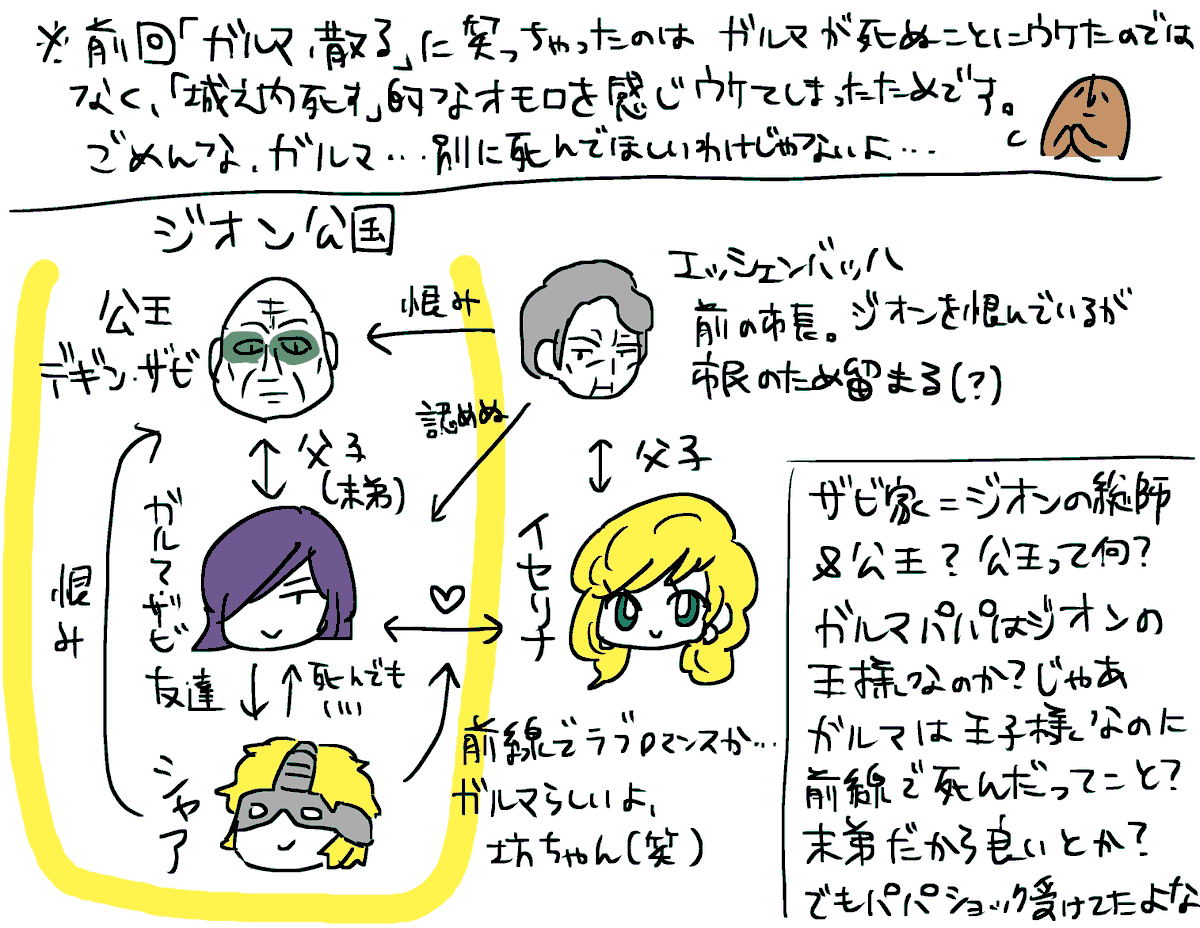 ※前回「ガルマ、散る」に笑っちゃったのは ガルマが死ぬことにウケたのでは
なく、「城之内死す」的なオモロを感じウケてしまったためです。
ごめんな、ガルマ…別に死んでほしいわけじゃないよ…
ジオン公国
公王
デギン・ザビ
恨み
エッシェンバッハ
前の市長。ジオンを恨んでいるが
市民のため留まる(?)
認めぬ
父子
(末弟)
父子
ガルマ・ザビ
イセリナ
恨み
友達
死んでも
いい
シャア
前線でラブロマンスか…
ガルマらしいよ、
坊ちゃん(笑)
ザビ家=ジオンの総師
&公王?公王って何?
ガルマパパはジオンの
王様なのか?じゃあ
ガルマは王子様なのに
前線で死んだってこと?
末弟だから良いとか?
でもパパショック受けてたよな